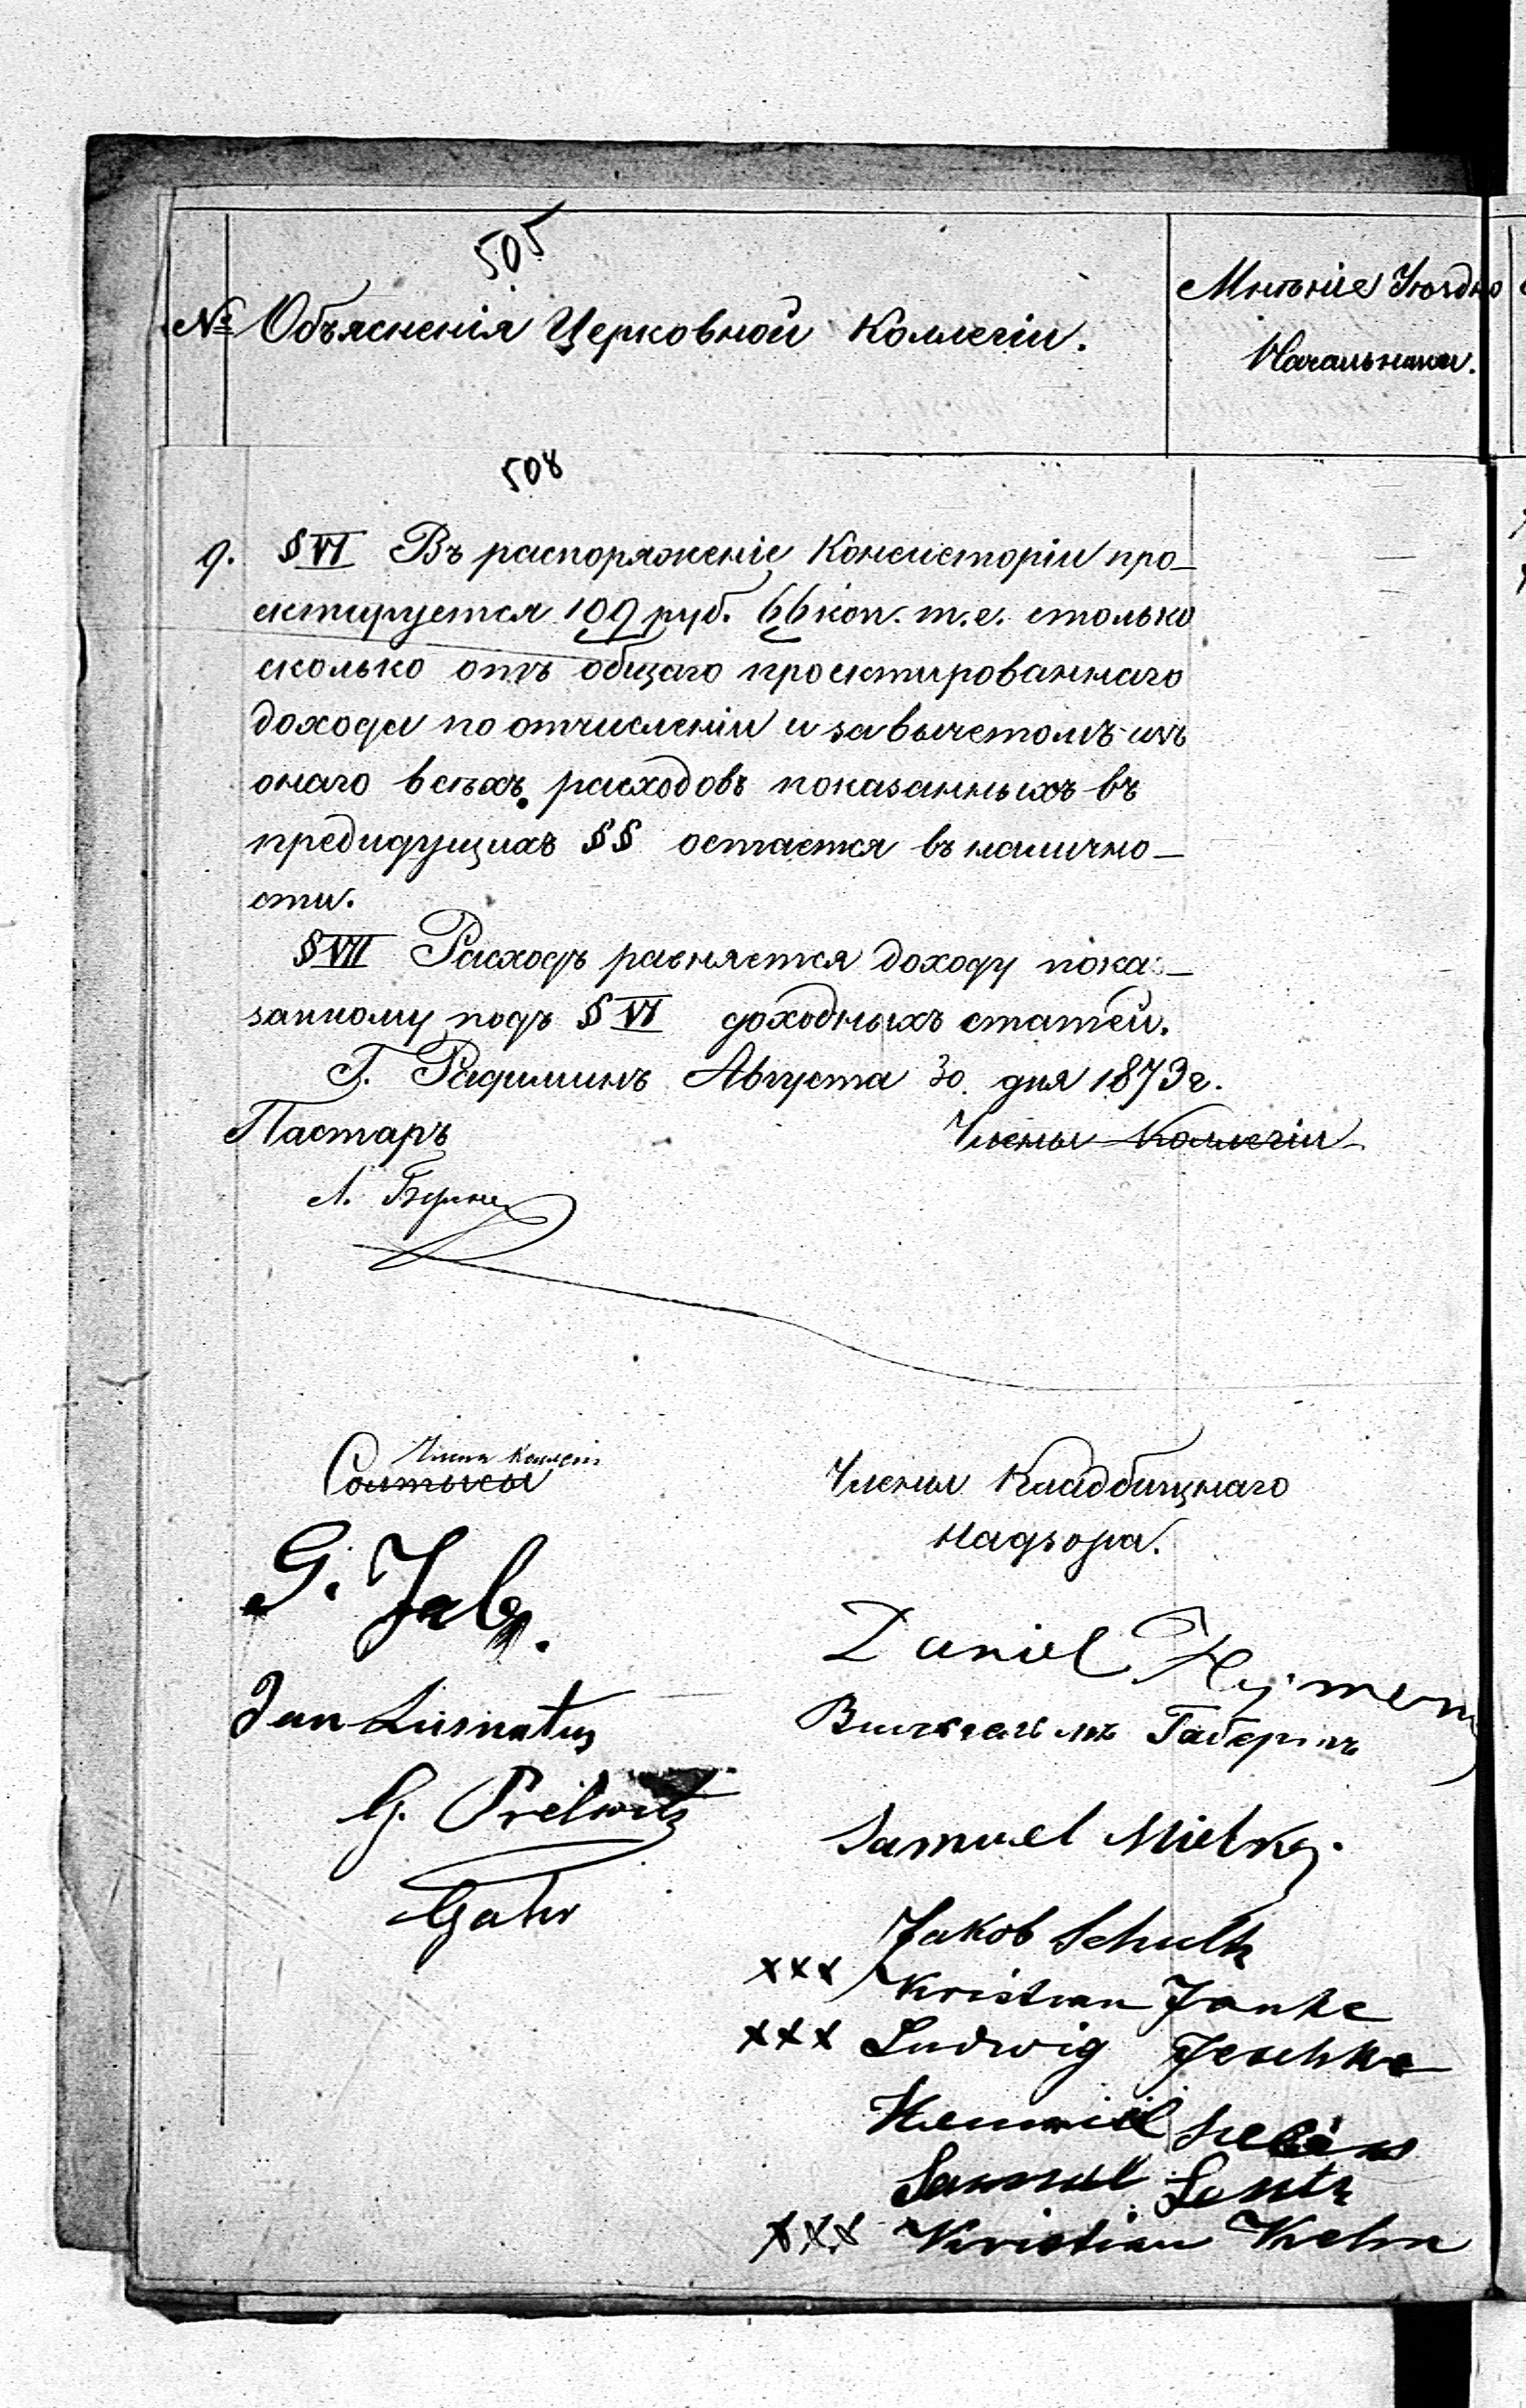 505
№ Объясненія Церковной Коллегіи.
Мнѣніе Уѣздно
Начальника.
508
9. § VI Въ распоряженіе Консисторіи про-
ектируется 109 руб. 66 коп. т.е. столько
сколько отъ общаго проектированнаго
дохода по отчисленіи и за вычетомъ изъ
онаго всѣхъ расходовъ показанныхъ въ
предидущихъ §§ остается въ налично-
сти.
§ VII Расходъ равняется доходу пока-
занному подъ § VI доходныхъ статей.
Г. Радзиминъ Августа 30 дня 1873 г.
Пасторъ
Члены Коллегіи
Л.
Члены Коллегіи
Солтысы
Члены Кладбищнаго
Надзора.
G.
Daniel
Jan
G. Prelwitz
Samuel Mielke
Gahr
Jakob Schultz
xxx Kristian Janke
xxx Ludwig Jeschke
Samuel Lentz
xxx Kristian Krehn